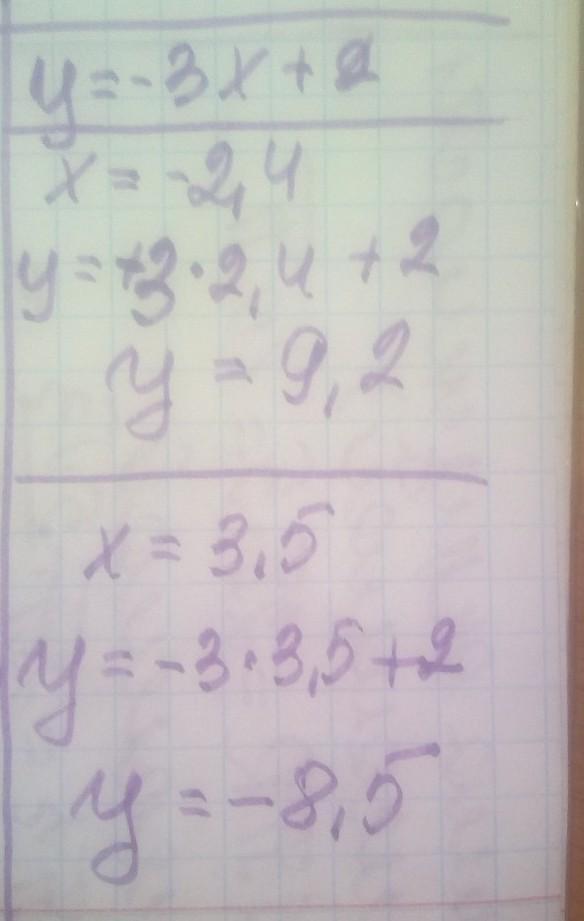 y=-3x+2
x=-2,4
y=+3·2,4+2
y=9,2
x=3,5
y=-3·3,5+2
y=-8,5